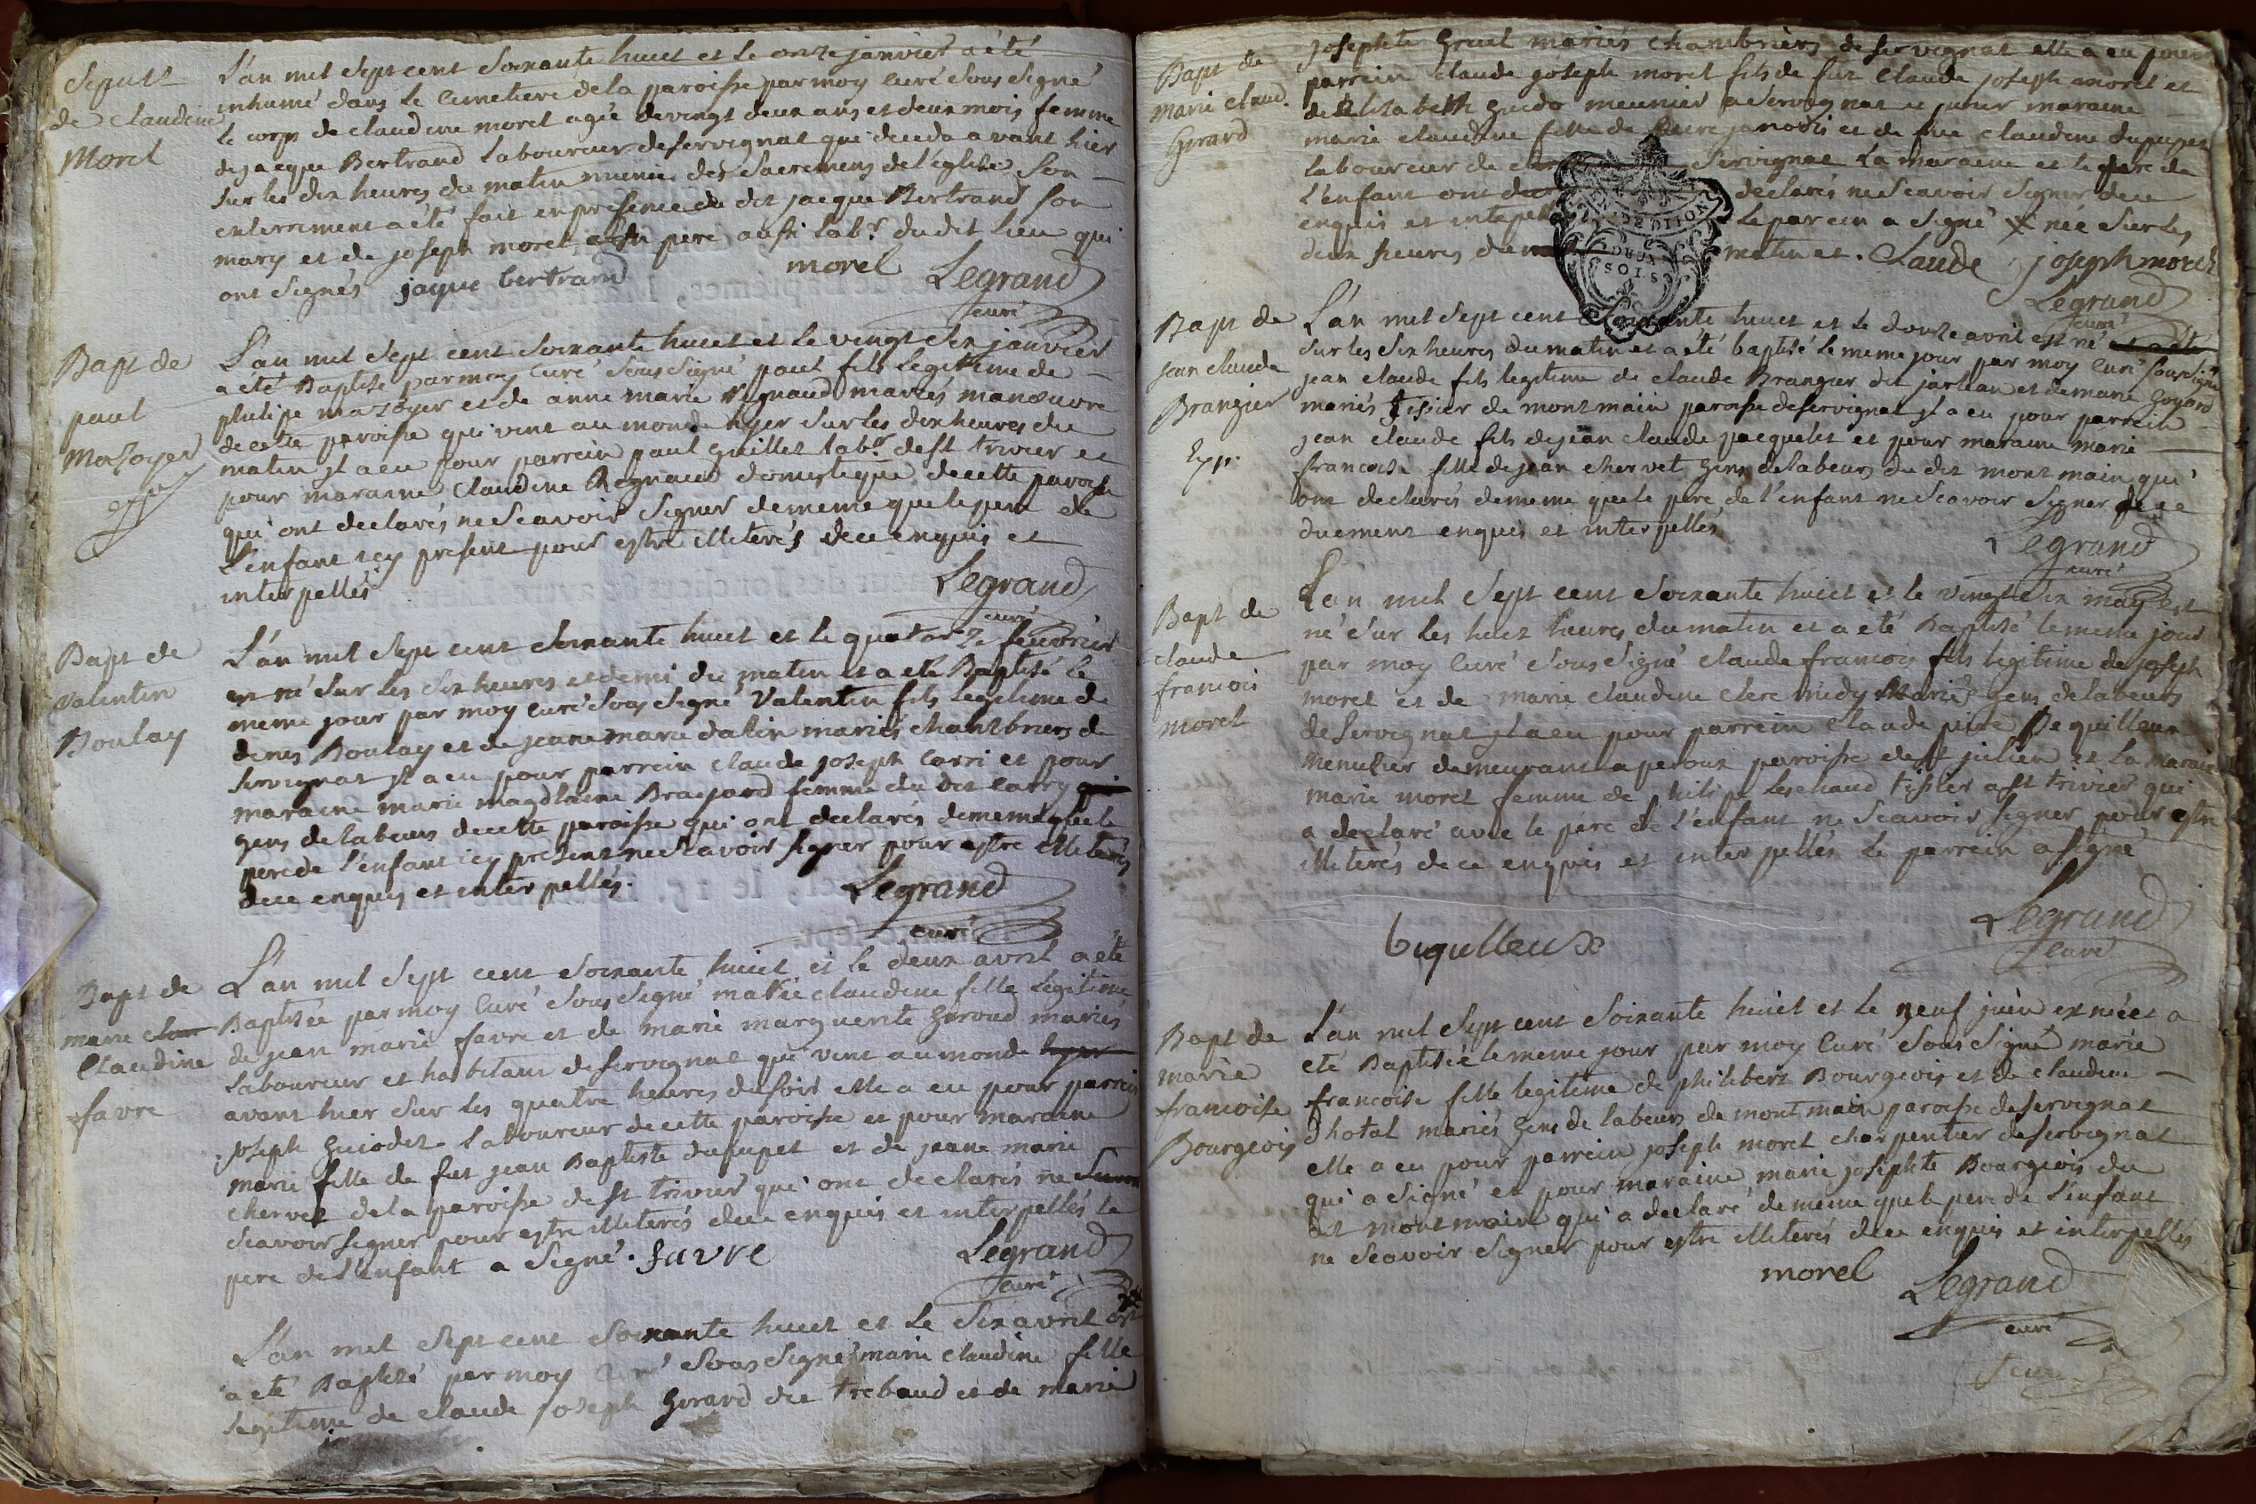 Sepult
de Claudine
Morel
L'an mil sept cent soixante huict et le onze janvier a été
inhumé dans le Cimetiere de la paroisse par moy Curé sous signé
le corps de claudine morel agée de vingt deux ans et deux mois femme
de jacque Bertrand Laboureur de servignat qui deceda avant hier
sur les dix heures du matin munie des sacremens de l'eglise son
enterrement a été fait en presence du dit jacque Bertrand son
mary et de joseph morel père aussi labr. du dit lieu qui
ont signés jaque bertrand morel Legrand
curé
Bapt de
paul
Mazoyer
L'an mil sept cent soixante huict et le vingt six janvier
a eté Baptisé par moy Curé sous signé paul fils legitime de
philipe mazoyer et de anne marie Regnaud mariés manœuvre
de cette paroisse qui vint au monde hyer sur les dix heures du
matin il a eu pour parrein paul Guillet labr. de st trivier et
pour maraine Claudine Regnaud domestique de cette paroisse
qui ont declarés ne scavoir signer de meme que le pere de
L'enfant icy present pour estre illiterés de ce enquis et
interpellés
Legrand
curé
Bapt de
Valentin
Boulay
L'an mil sept cent soixante huict et le quatorze fevrier
est né sur les six heures et demi du matin et a eté Baptisé le
meme jour par moy curé sous signé Valentin fils legitime de
denis Boulay et de jeane marie dalin mariés chambriers de
servignat il a eu pour parrein claude joseph Carri et pour
maraine marie magdlaine Brajard femme du dit Carry qui
gens de labeurs de cette paroisse qui ont declarés de meme que le
pere de l'enfant icy present ne scavoir signer pour estre illiterés
de ce enquis et interpellés.
Legrand
curé
Bapt de
marie clau
Claudine
favre
L'an mil sept cent soixante huict et le deux avril a eté
Baptisée par moy Curé sous signé marie claudine fille legitime
de jean marie favre et de marie marguerite Giroud mariés
laboureur et habitans de servignat qui vint au monde hyer
avant hier sur les quatre heures du soir elle a eu pour parrein
joseph Guiodet laboureur de cette paroisse et pour maraine
marie fille de fut jean Baptiste dupupet et de jeane marie
chervet de la paroisse de st trivier qui ont declarés ne
scavoir signer pour estre illiterés de ce enquis et interpellés le
pere de l'enfant a signé. favre Legrand
curé
L'an mil sept cent soixante huict et le six avril
a eté Baptisé par moy Curé sous signé marie claudine fille
legitime de claude joseph Girard dit trebaud et de marie
Bapt de
marie claud.
Girard
josephte Gruel mariés chambriers de servignat elle a eu pour
parrein claude joseph morel fils de fut claude joseph morel et
de Elisabeth Guido meunier a servignat et pour maraine
marie claudine fille de janodis et de fue claudine dupupet
laboureur de servignat La maraine et le pere de
L'enfant ont declarés ne scavoir signer de ce
enquis et interpellé Le parein a signé née sur les
deux heures du matin et. Claude joseph morel
Legrand
curé
Bapt de
jean claude
Brangier
Exp.
L'an mil sept cent soixante huict et le douze avril est né et a eté
sur les six heures du matin et a eté baptisé le meme jour par moy Curé soussigné
jean claude fils legitime de claude Brangier dit jarlian et de marie Goyard
mariés tissier de montmain paroisse de servignat il a eu pour parrein
jean claude fils de jean claude jacquelet et pour maraine marie
francoise fille de jean chervet gens de labeurs du dit mont main qui
ont declarés de meme que le pere de l'enfant ne scavoir signer de ce
duement enquis et interpellés
Legrand
curé
Bapt de
claude
francois
morel
L'an mil sept cent soixante huict et le vingt six may est
né sur les huict heures du matin et a eté Baptisé le meme jour
par moy Curé sous signé claude francois fils legitime de joseph
morel et de marie claudine clerc midy Mariés gens de labeurs
de servignat il a eu pour parrein Claude Be quilleux
menusier demeurant a peroux paroisse de st julien et la maraine
marie morel femme de philipe Lechaud tissier a st trivier qui
a declaré avec le pere de l'enfant ne scavoir signer pour estre
illiterés de ce enquis et interpellés le parrein a signé
biquilleux
Legrand
curé
Bapt de
marie
francoise
Bourgeois
L'an mil sept cent soixante huict et le neuf juin est née et a
eté Baptisée le meme jour par moy Curé sous signé marie
francoise fille legitime de philibert Bourgeois et de claudine
d'hotal mariés Gens de labeurs de mont main paroisse de servignat
elle a eu pour parrein joseph morel charpentier de servignat
qui a signé et pour maraine marie josephte Bourgeois du
dit mont main qui a declaré de meme que le pere de l'enfant
ne scavoir signer pour estre illiterés de ce enquis et interpellés
morel Legrand
curé